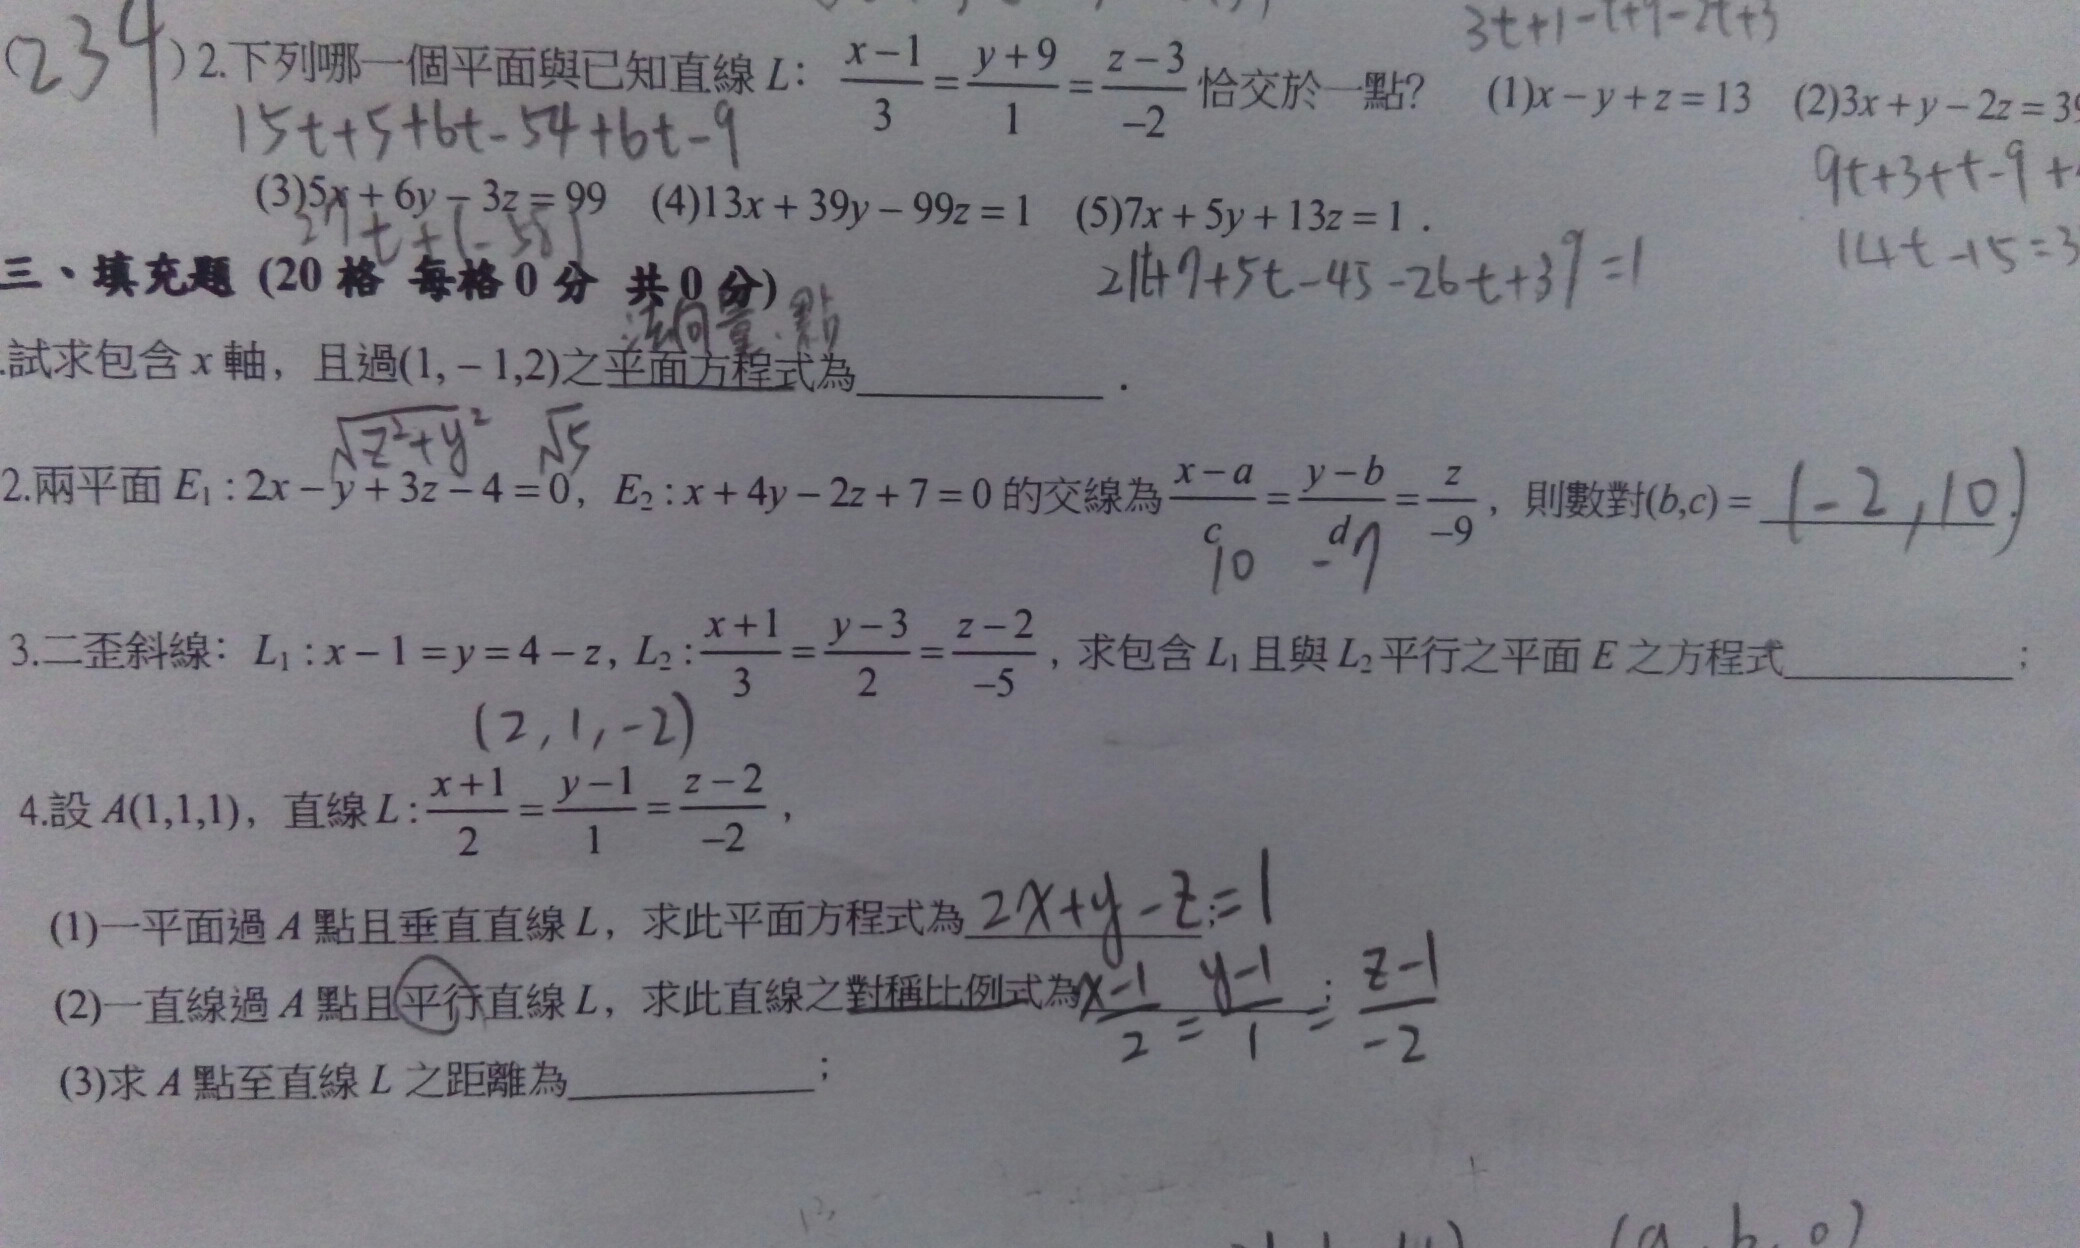 3t+1-t+9-2t+3
(234)2.下列哪一個平面與已知直線 L： \frac{x-1}{3} = \frac{y+9}{1} = \frac{z-3}{-2} 恰交於一點？ (1)x-y+z=13 (2)3x+y-2z=39
15t+5+6t-54+6t-9
9t+3+t-9+
(3)5x+6y-3z=99 (4)13x+39y-99z=1 (5)7x+5y+13z=1．
27t+(-58)
21t+7+5t-45-26t+39=1
14t-15=3
三、填充題 (20 格 每格 0 分 共 0 分)
法向量．點
.試求包含 x 軸，且過(1,-1,2)之平面方程式為__________．
√z²+y² √5
2.兩平面 E₁:2x-y+3z-4=0，E₂:x+4y-2z+7=0 的交線為 \frac{x-a}{c} = \frac{y-b}{d} = \frac{z}{-9}，則數對(b,c)= (-2,10)
10 -7
3.二歪斜線：L₁:x-1=y=4-z, L₂:\frac{x+1}{3} = \frac{y-3}{2} = \frac{z-2}{-5}，求包含 L₁ 且與 L₂ 平行之平面 E 之方程式__________；
(2,1,-2)
4.設 A(1,1,1)，直線 L:\frac{x+1}{2} = \frac{y-1}{1} = \frac{z-2}{-2}，
(1)一平面過 A 點且垂直直線 L，求此平面方程式為 2x+y-z=1 ；
(2)一直線過 A 點且平行直線 L，求此直線之對稱比例式為 \frac{x-1}{2} = \frac{y-1}{1} = \frac{z-1}{-2} ；
(3)求 A 點至直線 L 之距離為__________；
(a,b,0)